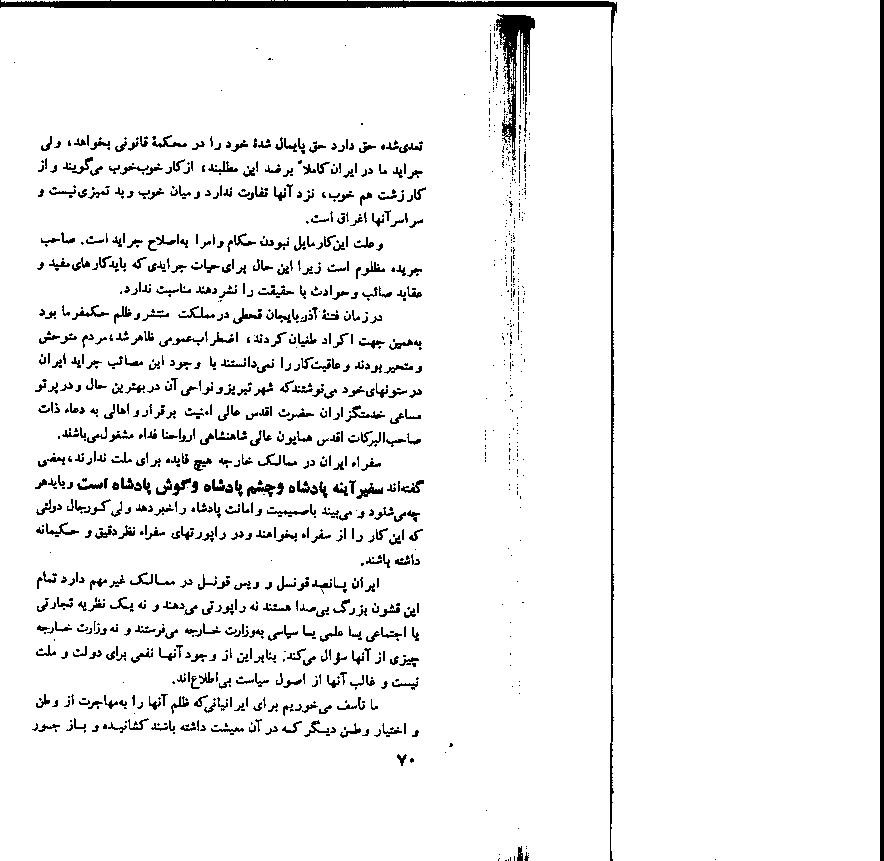 تعدی‌شده حق دارد حق پایمال شدهٔ خود را در محکمهٔ قانونی بخواهد، ولی
جراید ما در ایران کاملاً برضد این مطلبند، ازکار خوب‌خوب می‌گویند و از
کار زشت هم خوب، نزد آنها تفاوت ندارد و میان خوب و بد تمیزی‌نیست و
سراسر آنها اغراق است.
وعلت این‌کار مایل نبودن حکام و امرا به‌اصلاح جراید است. صاحب
جریده مظلوم است زیرا این حال برای حیات جرایدی‌که بایدکارهای‌مفید و
عقاید صائب و حوادث با حقیقت را نشردهند مناسبت ندارد.
در زمان فتنهٔ آذربایجان قحطی در مملکت منتشر و ظلم حکمفرما بود
به‌همین جهت اکراد طغیان کردند، اضطراب‌عمومی ظاهر شد، مردم متوحش
و متحیر بودند و عاقبت‌کار را نمی‌دانستند با وجود این مصائب جراید ایران
در ستونهای‌خود می‌نوشتندکه شهر تبریز و نواحی آن در بهترین حال و در پرتو
مساعی خدمتگزاران حضرت اقدس عالی امنیت برقرار و اهالی به دعاء ذات
صاحب‌البرکات اقدس همایون عالی شاهنشاهی ارواحنا فداه مشغول‌می‌باشند.
سفراء ایران در ممالک خارجه هیچ فایده برای ملت ندارند، بعضی
گفته‌اند سفیر آینه پادشاه و چشم پادشاه و گوش پادشاه است و بایدهر
چه‌می‌شنود و می‌بیند باصمیمیت و امانت پادشاه را خبر دهد ولی کو رجال دولتی
که این‌کار را از سفراء بخواهند و در راپورتهای سفراء نظر دقیق و حکیمانه
داشته باشند.
ایران پانصد قونسل و ویس قونسل در ممالک غیر مهم دارد تمام
این قشون بزرگ بی‌صدا هستند نه راپورتی می‌دهند و نه یک نظریه تجارتی
یا اجتماعی یا علمی یا سیاسی به‌وزارت خارجه می‌فرستند و نه وزارت خارجه
چیزی از آنها سؤال می‌کند. بنابراین از وجود آنها نفعی برای دولت و ملت
نیست و غالب آنها از اصول سیاست بی‌اطلاع‌اند.
ما تأسف می‌خوریم برای ایرانیانی‌که ظلم آنها را به‌مهاجرت از وطن
و اختیار وطن دیگر که در آن معیشت داشته باشند کشانیده و باز جور
۷۰